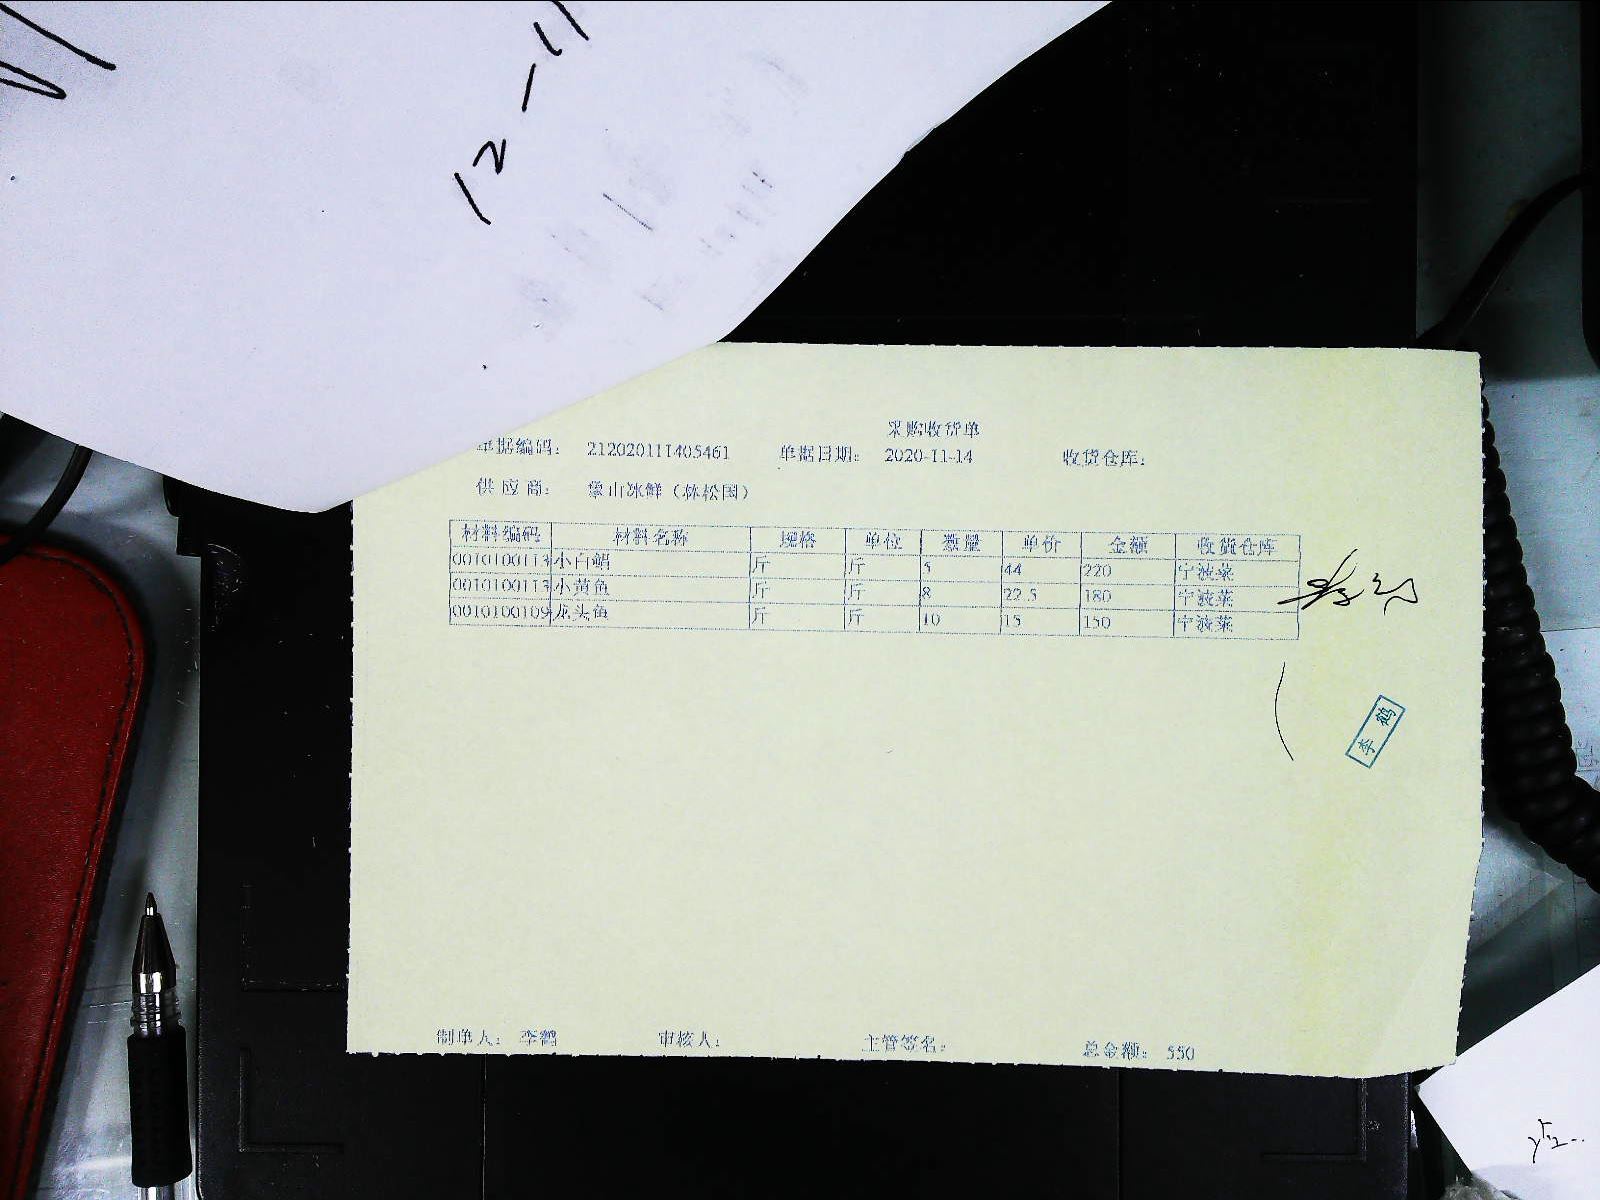 12-11
采购收货单
单据编码： 212020111405461 单据日期： 2020-11-14 收货仓库：
供应商： 象山冰鲜（林松国）
材料编码 材料名称 规格 单位 数量 单价 金额 收货仓库
0010100113 小白鲳 斤 斤 5 44 220 宁波菜
0010100113 小黄鱼 斤 斤 8 22.5 180 宁波菜
0010100109 龙头鱼 斤 斤 10 15 150 宁波菜
李鹤
制单人： 李鹤 审核人： 主管签名： 总金额： 550